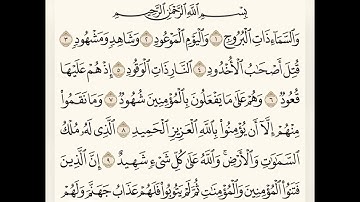 بِسْمِ اللَّهِ الرَّحْمَٰنِ الرَّحِيمِ
وَالسَّمَاءِ ذَاتِ الْبُرُوجِ ١ وَالْيَوْمِ الْمَوْعُودِ ٢ وَشَاهِدٍ وَمَشْهُودٍ ٣
قُتِلَ أَصْحَابُ الْأُخْدُودِ ٤ النَّارِ ذَاتِ الْوَقُودِ ٥ إِذْ هُمْ عَلَيْهَا
قُعُودٌ ٦ وَهُمْ عَلَىٰ مَا يَفْعَلُونَ بِالْمُؤْمِنِينَ شُهُودٌ ٧ وَمَا نَقَمُوا
مِنْهُمْ إِلَّا أَنْ يُؤْمِنُوا بِاللَّهِ الْعَزِيزِ الْحَمِيدِ ٨ الَّذِي لَهُ مُلْكُ
السَّمَاوَاتِ وَالْأَرْضِ وَاللَّهُ عَلَىٰ كُلِّ شَيْءٍ شَهِيدٌ ٩ إِنَّ الَّذِينَ
فَتَنُوا الْمُؤْمِنِينَ وَالْمُؤْمِنَاتِ ثُمَّ لَمْ يَتُوبُوا فَلَهُمْ عَذَابُ جَهَنَّمَ وَلَهُمْ